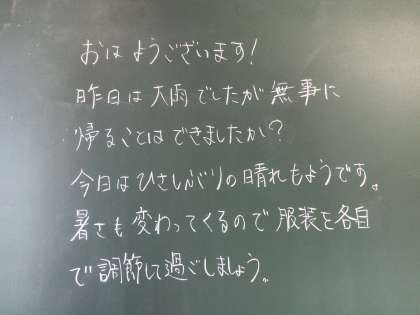 おはようございます!
昨日は大雨でしたが無事に
帰ることはできましたか?
今日はひさしぶりの晴れもようです。
暑さも変わってくるので服装を各自
で調節して過ごしましょう。